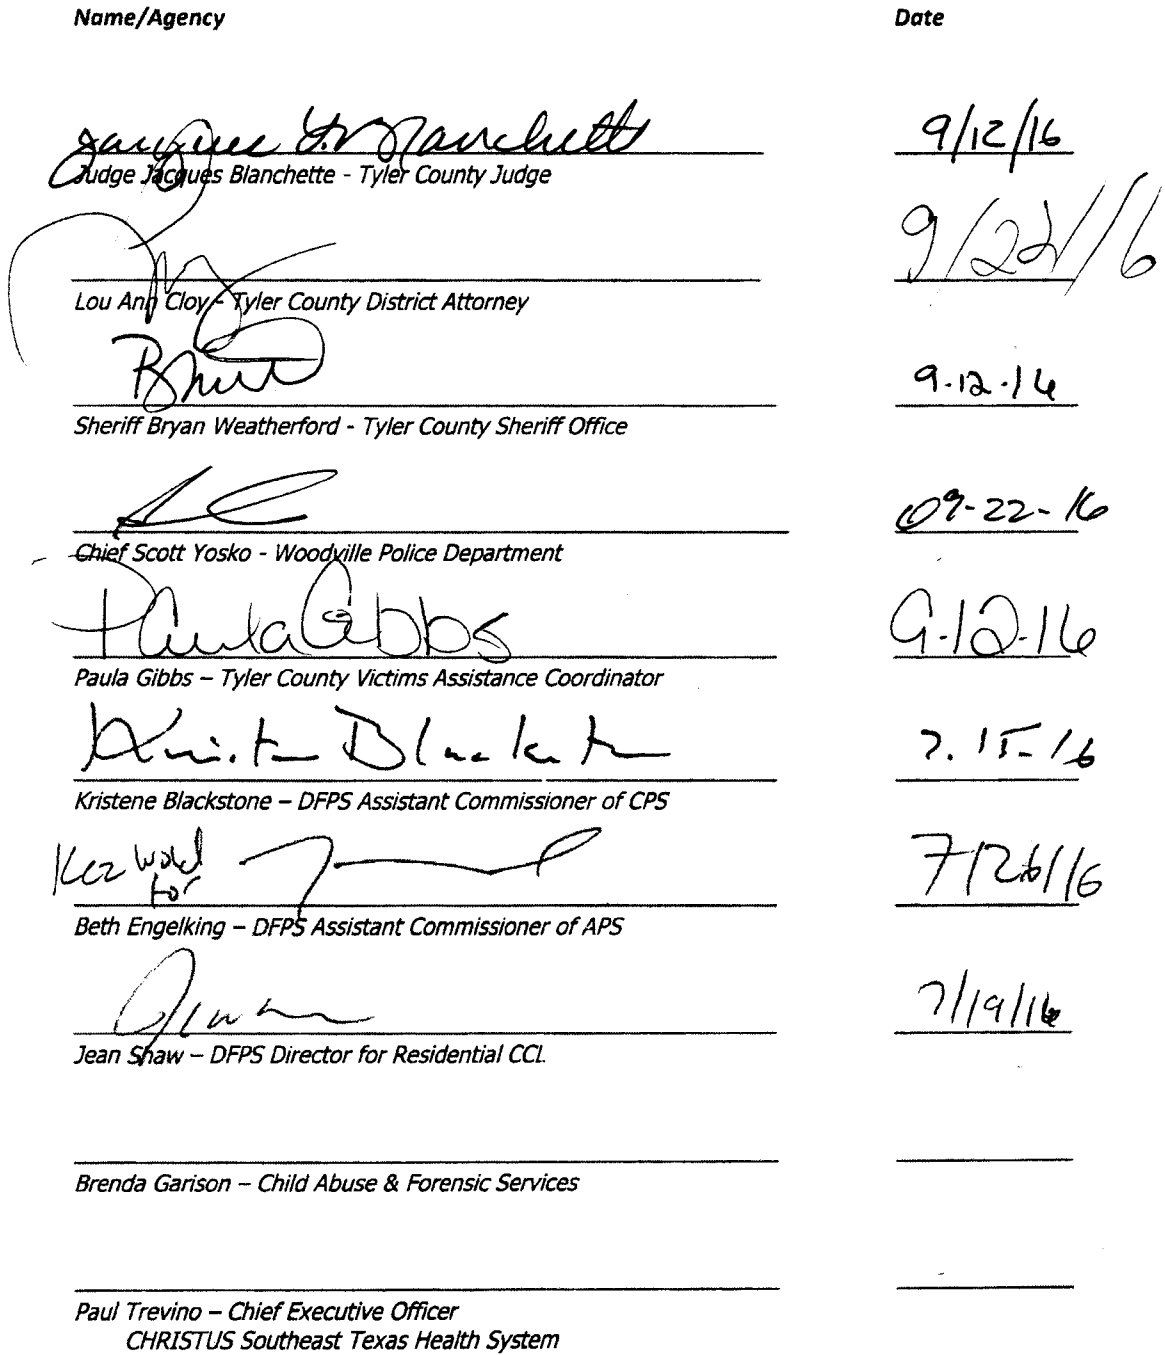 Name/Agency Date
Jacques L. Blanchette 9/12/16
Judge Jacques Blanchette - Tyler County Judge
9/22/16
Lou Ann Cloy - Tyler County District Attorney
9-12-16
Sheriff Bryan Weatherford - Tyler County Sheriff Office
09-22-16
Chief Scott Yosko - Woodville Police Department
Paula Gibbs 9-12-16
Paula Gibbs – Tyler County Victims Assistance Coordinator
7-15-16
Kristene Blackstone – DFPS Assistant Commissioner of CPS
Kez Wold for 7/26/16
Beth Engelking – DFPS Assistant Commissioner of APS
7/19/16
Jean Shaw – DFPS Director for Residential CCL
Brenda Garison – Child Abuse & Forensic Services
Paul Trevino – Chief Executive Officer
CHRISTUS Southeast Texas Health System